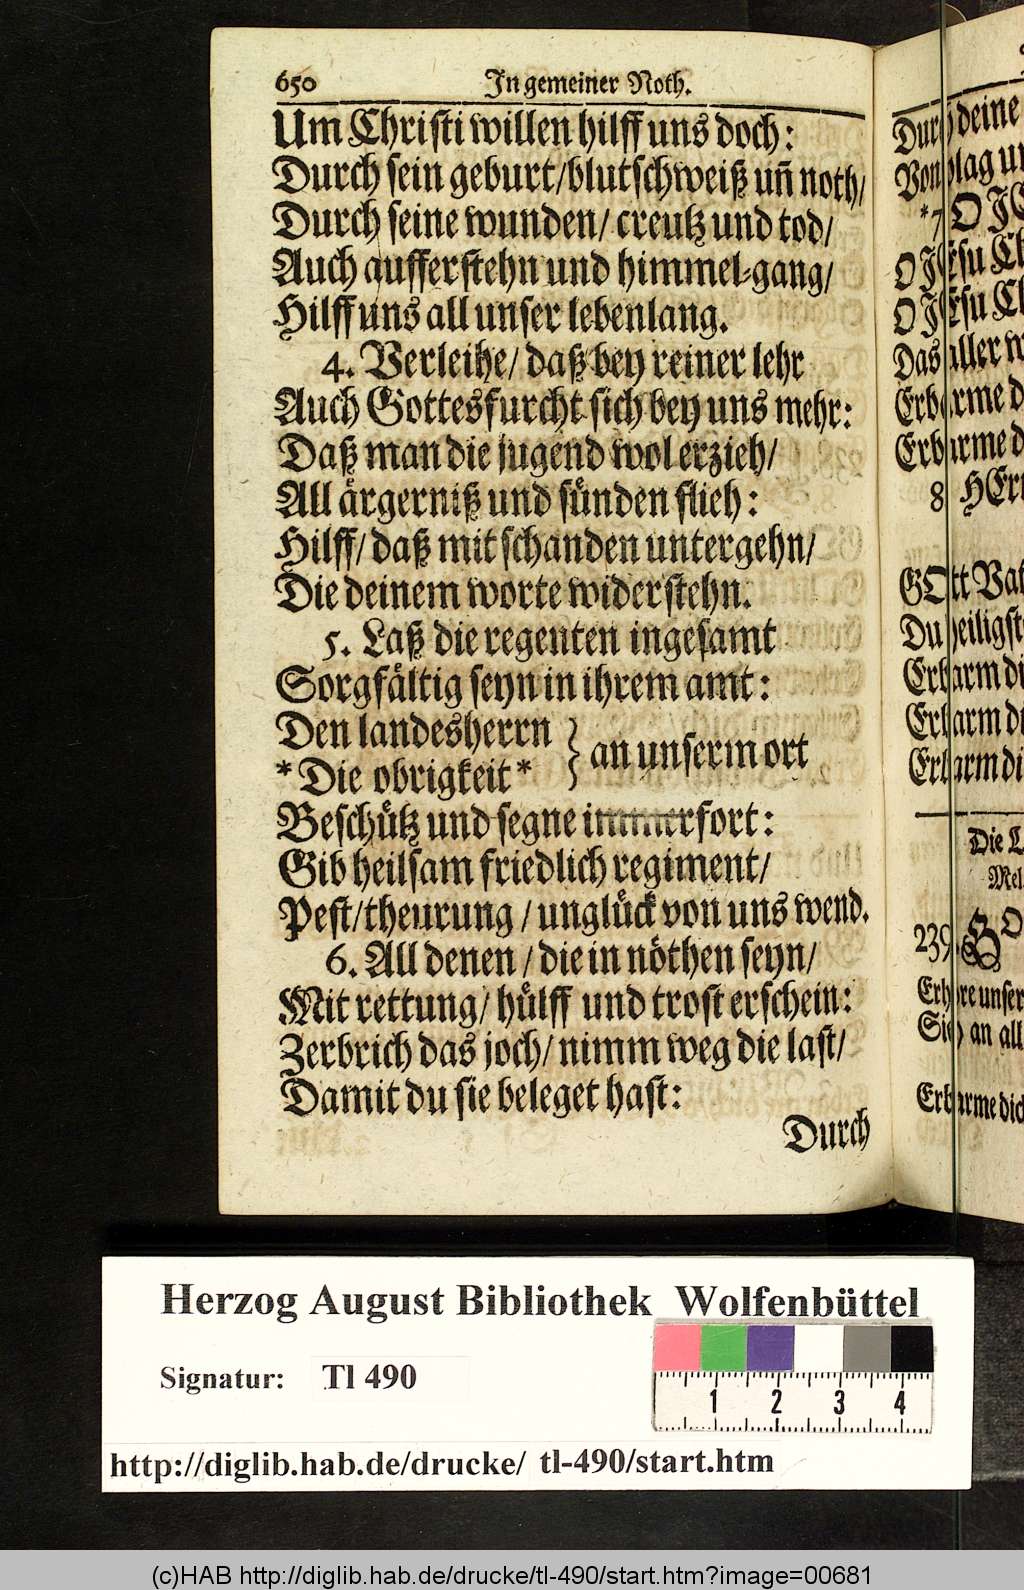 650 In gemeiner Noth.
Um Christi willen hilff uns doch:
Durch sein geburt/blutschweiß uñ noth/
Durch seine wunden/ creutz und tod/
Auch aufferstehn und himmel-gang/
Hilff uns all unser lebenlang.
4. Verleihe/ daß bey reiner lehr
Auch Gottesfurcht sich bey uns mehr:
Daß man die jugend wol erzieh/
All ärgerniß und sünden flieh:
Hilff/ daß mit schanden untergehn/
Die deinem worte widerstehn.
5. Laß die regenten ingesamt
Sorgfältig seyn in ihrem amt:
Den landesherrn
*Die obrigkeit* } an unserm ort
Beschütz und segne immerfort:
Gib heilsam friedlich regiment/
Pest/theurung / unglück von uns wend.
6. All denen / die in nöthen seyn/
Mit rettung/ hülff und trost erschein:
Zerbrich das joch/ nimm weg die last/
Damit du sie beleget hast:
Durch
Durch deine
Von plag
*7 O
O JEsu
O JEsu
Das aller
Erbarme
Erbarme
8 HErr
GOtt
Du heiligst
Erbarm
Erbarm
Erbarm
Die
Mel
239.
Erhöre unser
Sieh an all
Erbarme dich
Herzog August Bibliothek Wolfenbüttel
Signatur: Tl 490
1 2 3 4
http://diglib.hab.de/drucke/ tl-490/start.htm
(c)HAB http://diglib.hab.de/drucke/tl-490/start.htm?image=00681